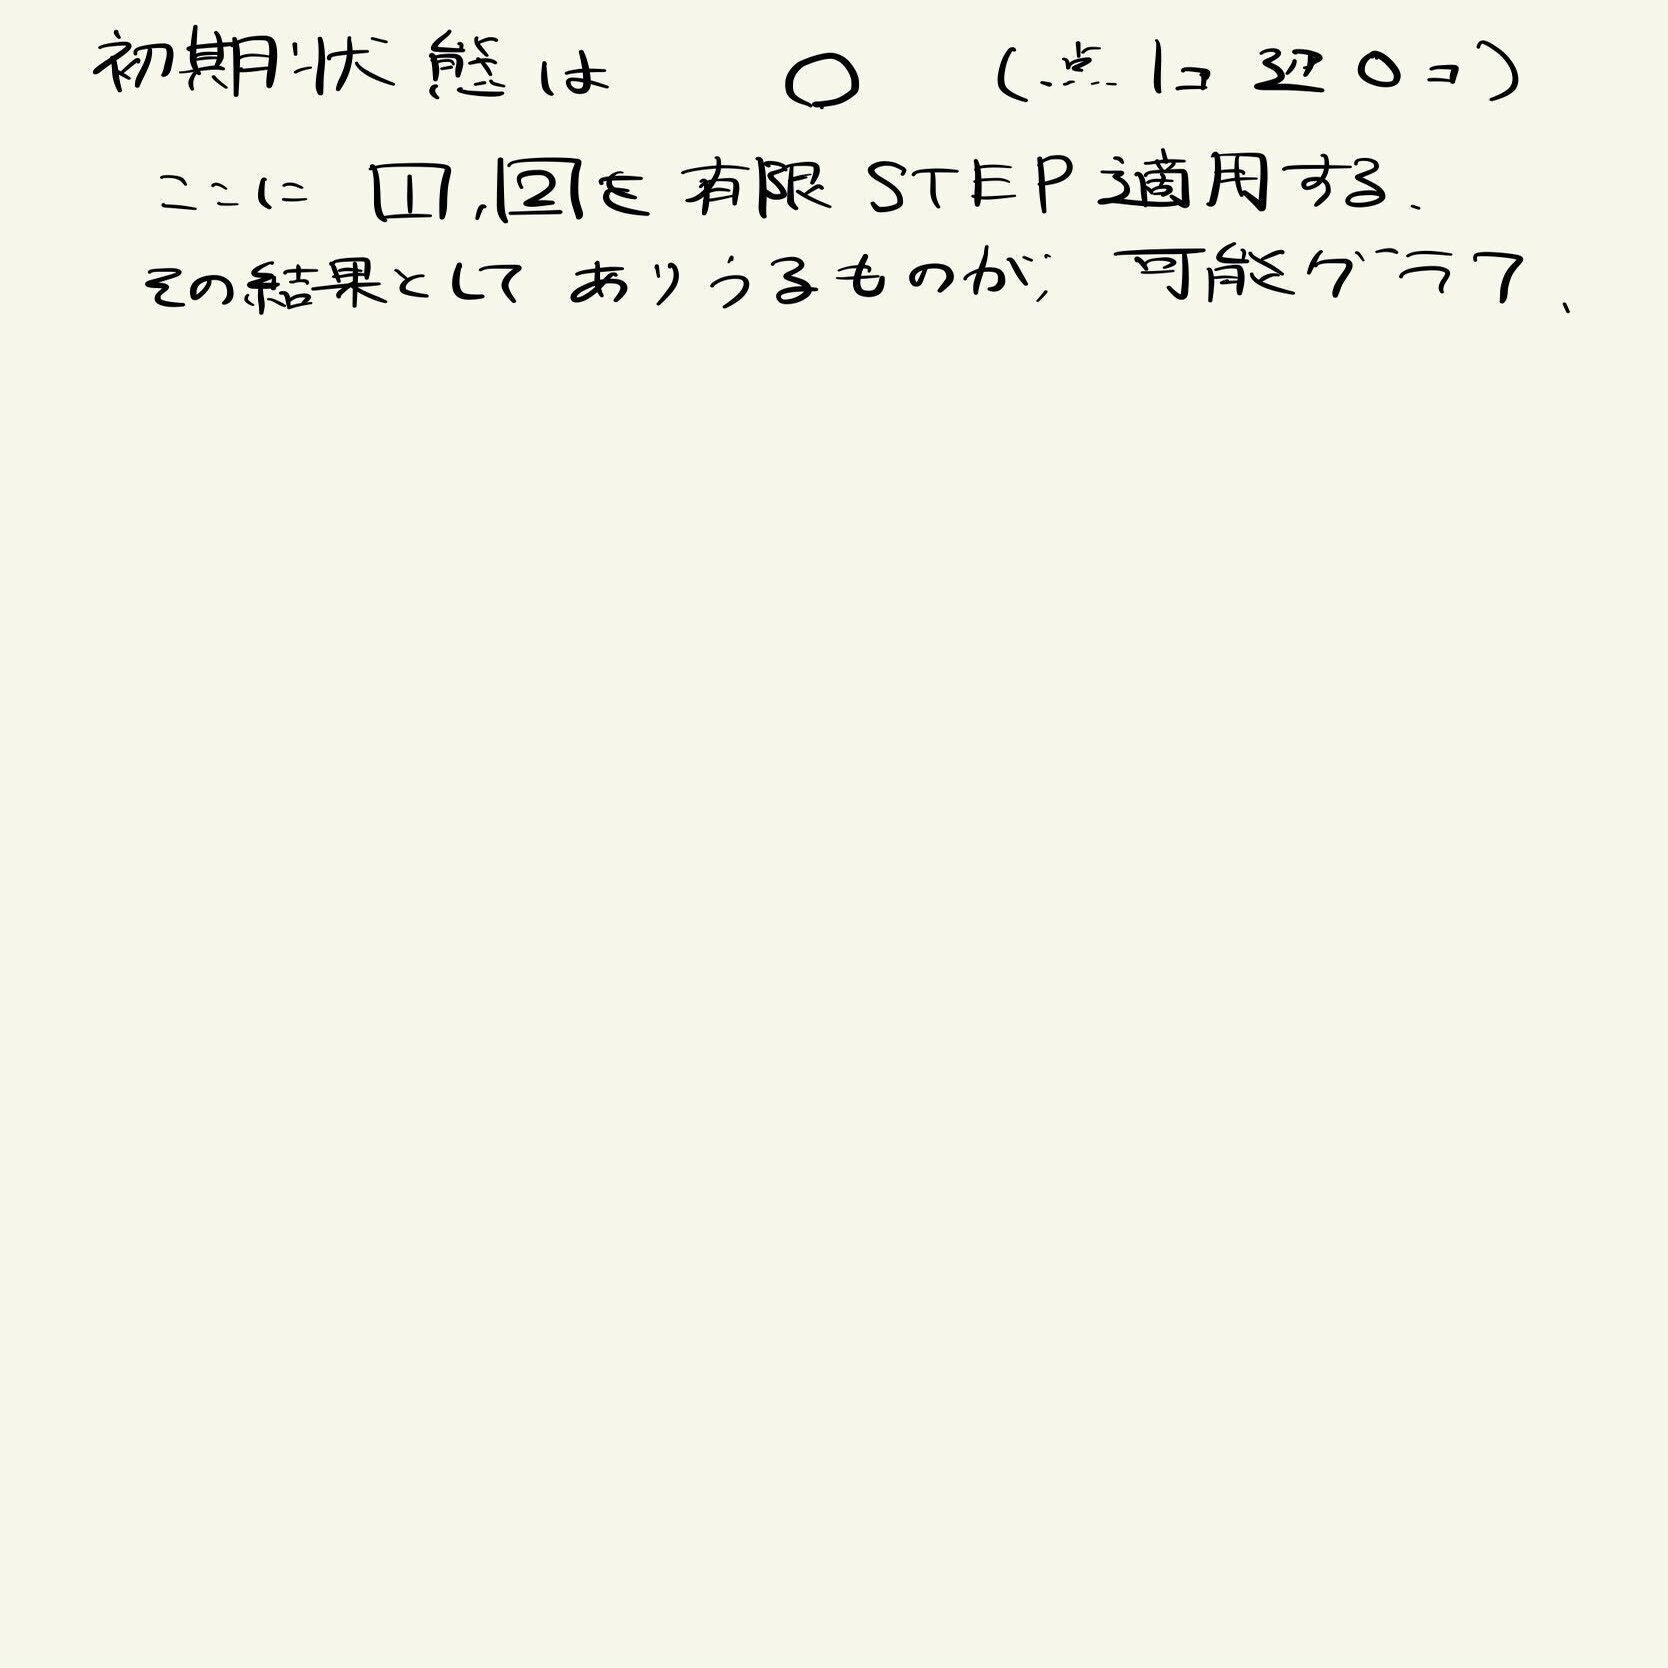 初期状態は ○ (点1コ 辺0コ)
ここに 1,2を有限STEP適用する.
その結果としてありうるものが, 可能グラフ、